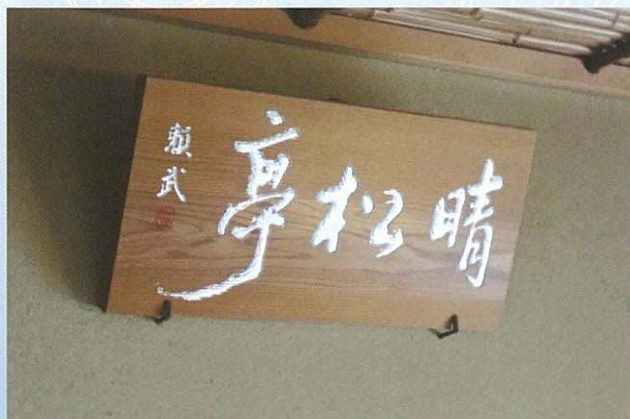 晴松亭
頼武